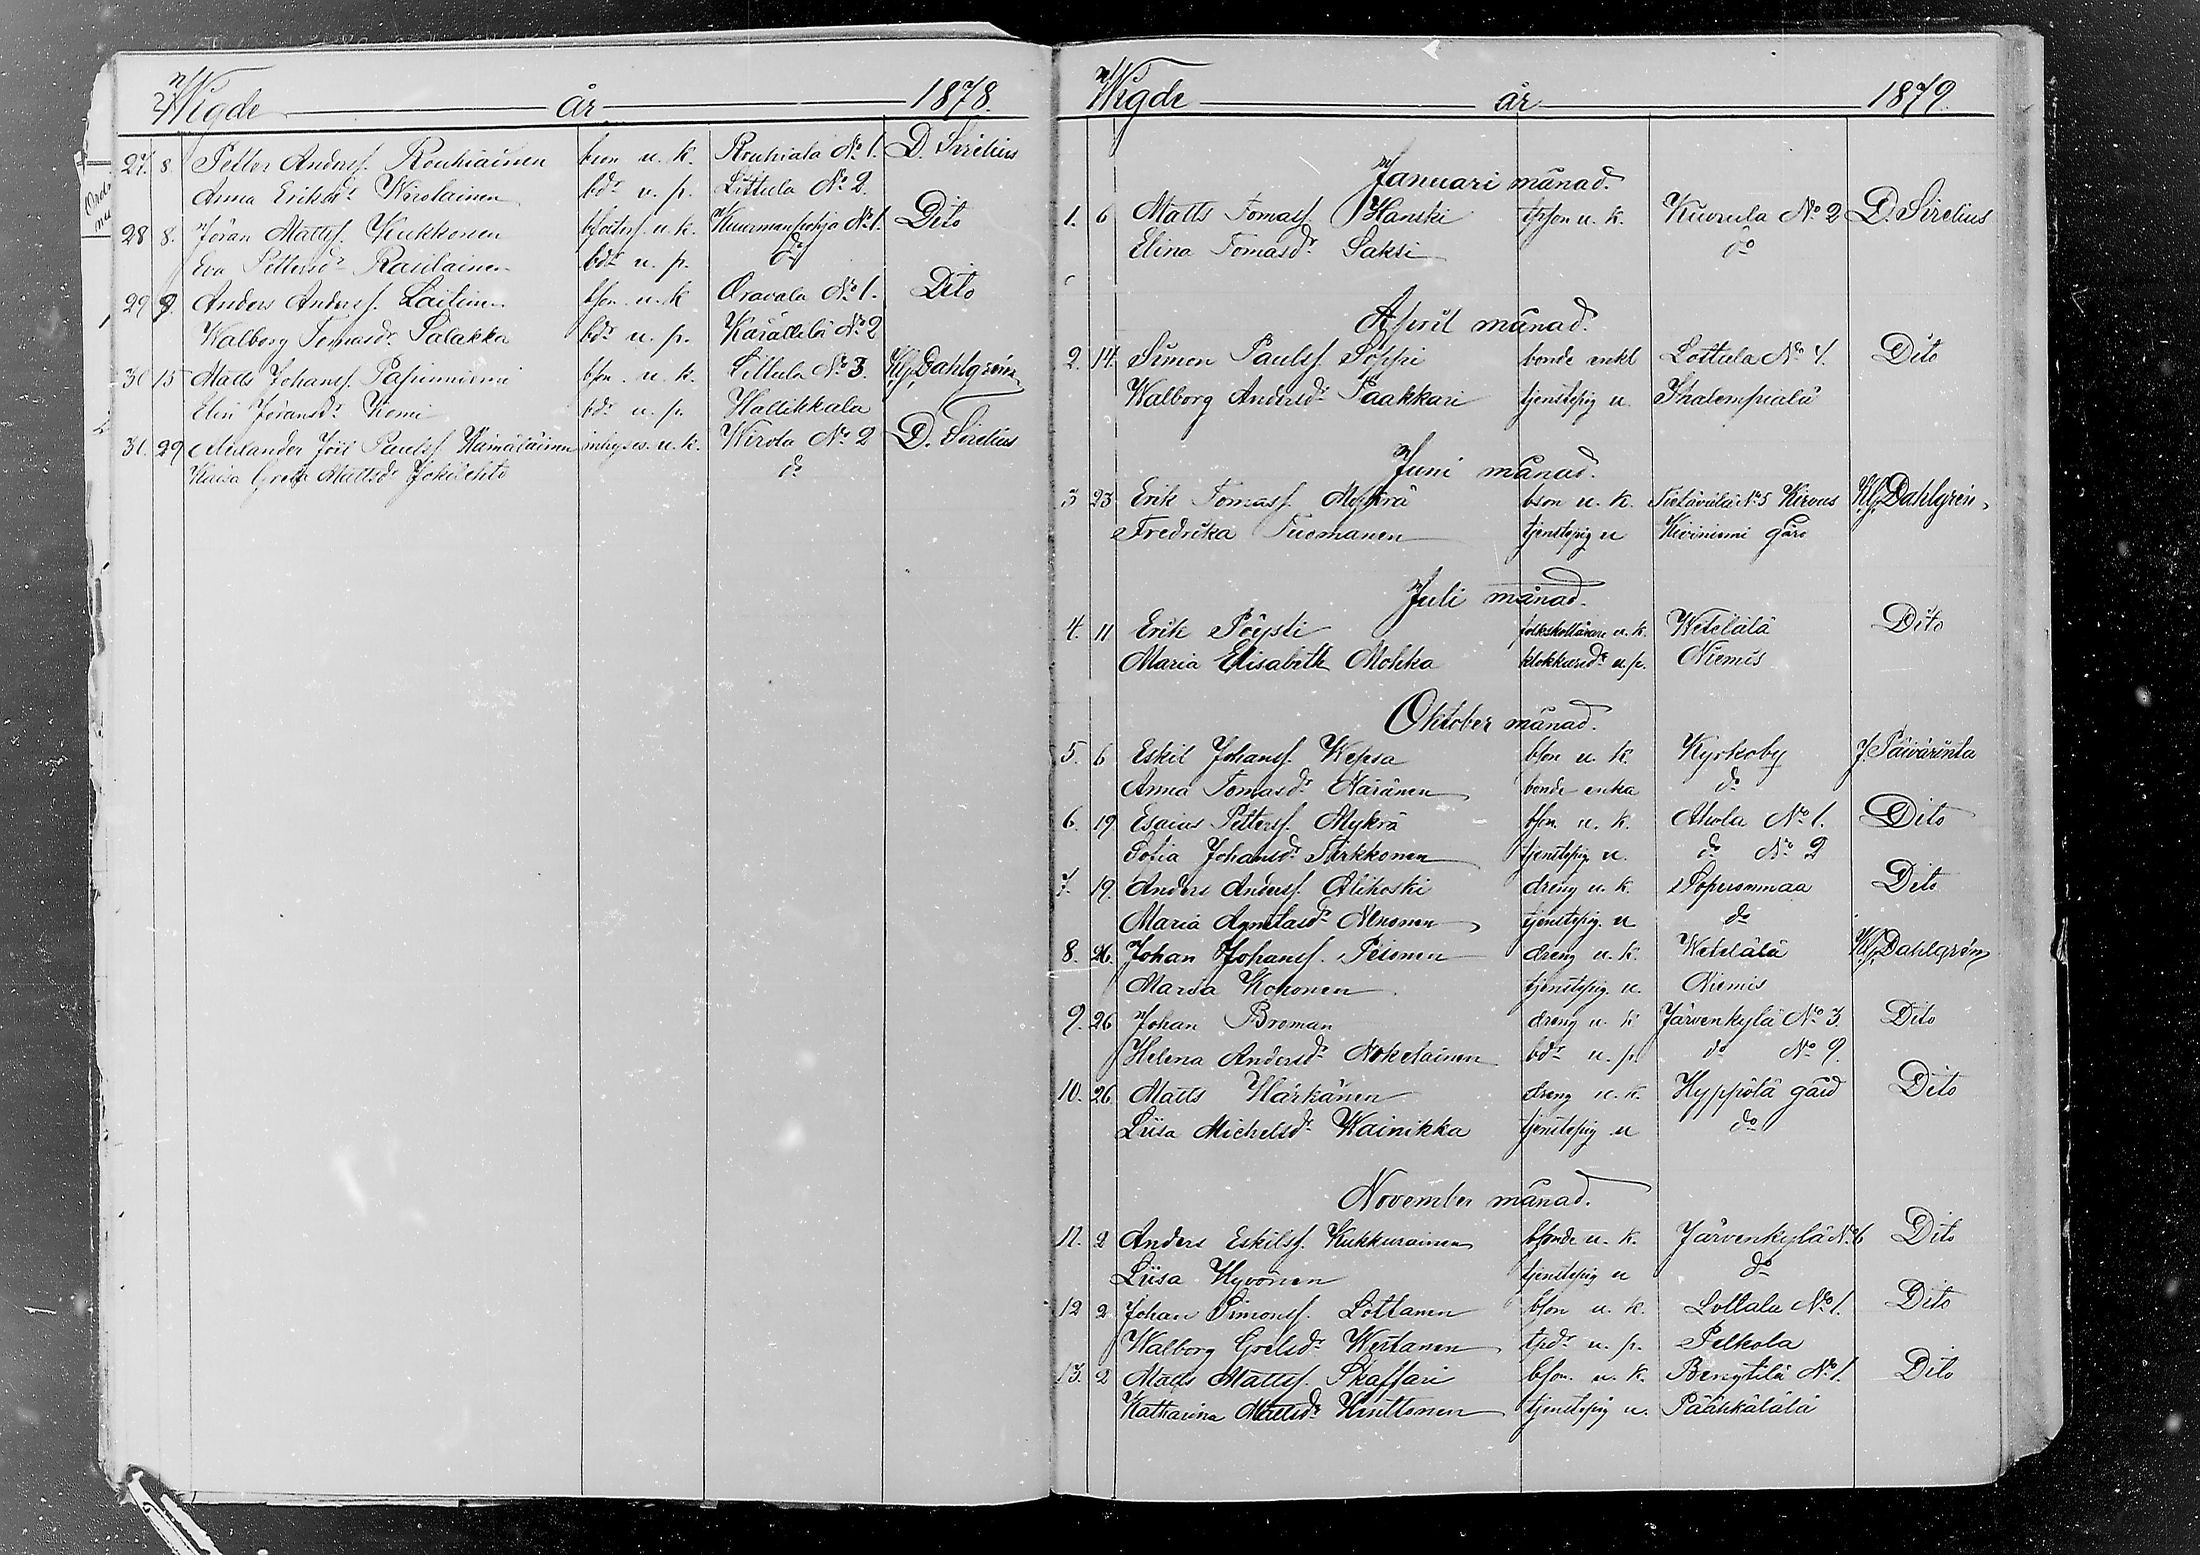 Wigde år 1878.
27. 8. Petter Anders. Rouhiainen bson u. k. Rouhiala No 1. D. Sirelius
Anna Eriksdr Wirolainen bdr u. p. Littula No 2.
28 8. Jöran Matts. Kukkonen u. k. Kuurmanpohja No 1. Dito
Eva Pettersdr Rasilainen bdr u. p. do
29 9. Anders Anders. Laitinen bson u. k Oravala No 1. Dito
Walborg Tomasdr Salakka bdr u. p. Karällilä No 2
30 15 Matts Johans. Papinniemi bson. u. k. Littula No 3. Klg. Dahlgrén
Elin Jöransdr Komi bdr u. p. Hallikkala
31. 29 Alexander Joël Pauls. Hämäläinen inhyses. u. k. Wirola No 2 D. Sirelius
Kaisa Greta Mattsdr Jokilehto do
Wigde år 1879.
Januari månad.
1. 6 Matts Tomass. Hanski tpson u. k. Kuurula No 2 D. Sirelius
Elina Tomasdr Saksi do
April månad.
2. 14. Simon Paulss. Soppi bonde enkl Lottala No 4. Dito
Walborg Andersdr Paakkari tjenstepig u. Ihalempialä
Juni månad.
3 23 Erik Tomass. Mykrä bson u. k. Kirvus Klg. Dahlgrén.
Fredrika Tuomanen tjenstepig u Kiviniemi gård
Juli månad.
4. 11 Erik Pöysti folkskollärare u. k. Wetelälä Dito
Maria Elisabeth Mohka klokkaredr u. p. Niemis
Oktober månad.
5. 6 Eskil Johanss. Wepsa bson u. k. Kyrkoby J. Päivärinta
Anna Tomasdr Näränen bonde enka do
6. 19 Esaias Petters. Mykrä bson. u. k. Ahola No 1. Dito
Sofia Johansdr Sirkkonen tjenstepig u. do No 2
7. 19. Anders Anders. Alikoski dreng u. k. Soperonmaa Dito
Maria Nenonen tjenstepig. u do
8. 26. Johan Johans. Pesonen dreng u. k. Wetelälä Klg. Dahlgrén
Maria Kokonen tjenstepig. u. Niemis
9. 26 Johan Broman dreng u. k Järvenkylä No 3. Dito
Helena Andersdr Nokelainen bdr u. p. do No 9.
10. 26 Matts Härkänen dreng u. k. Hyppölä gård Dito
Liisa Michelsdr Wainikka tjenstepig u do
November månad.
11. 2 Anders Eskilss. Kukkurainen u. k. Järvenkylä No 6 Dito
Liisa Hyvönen tjenstepig u do
12 2. Johan Simons. Lottanen bson u. k. Lottala No 1. Dito
Walborg Grelsdr Westanen tpdr u. p. Pelkola
13. 2 Matts Matts. Skaffari bson. u. k. Bengtilä No 1. Dito
Katharina Mattsdr Hinttonen tjenstepig u. Päähkälälä